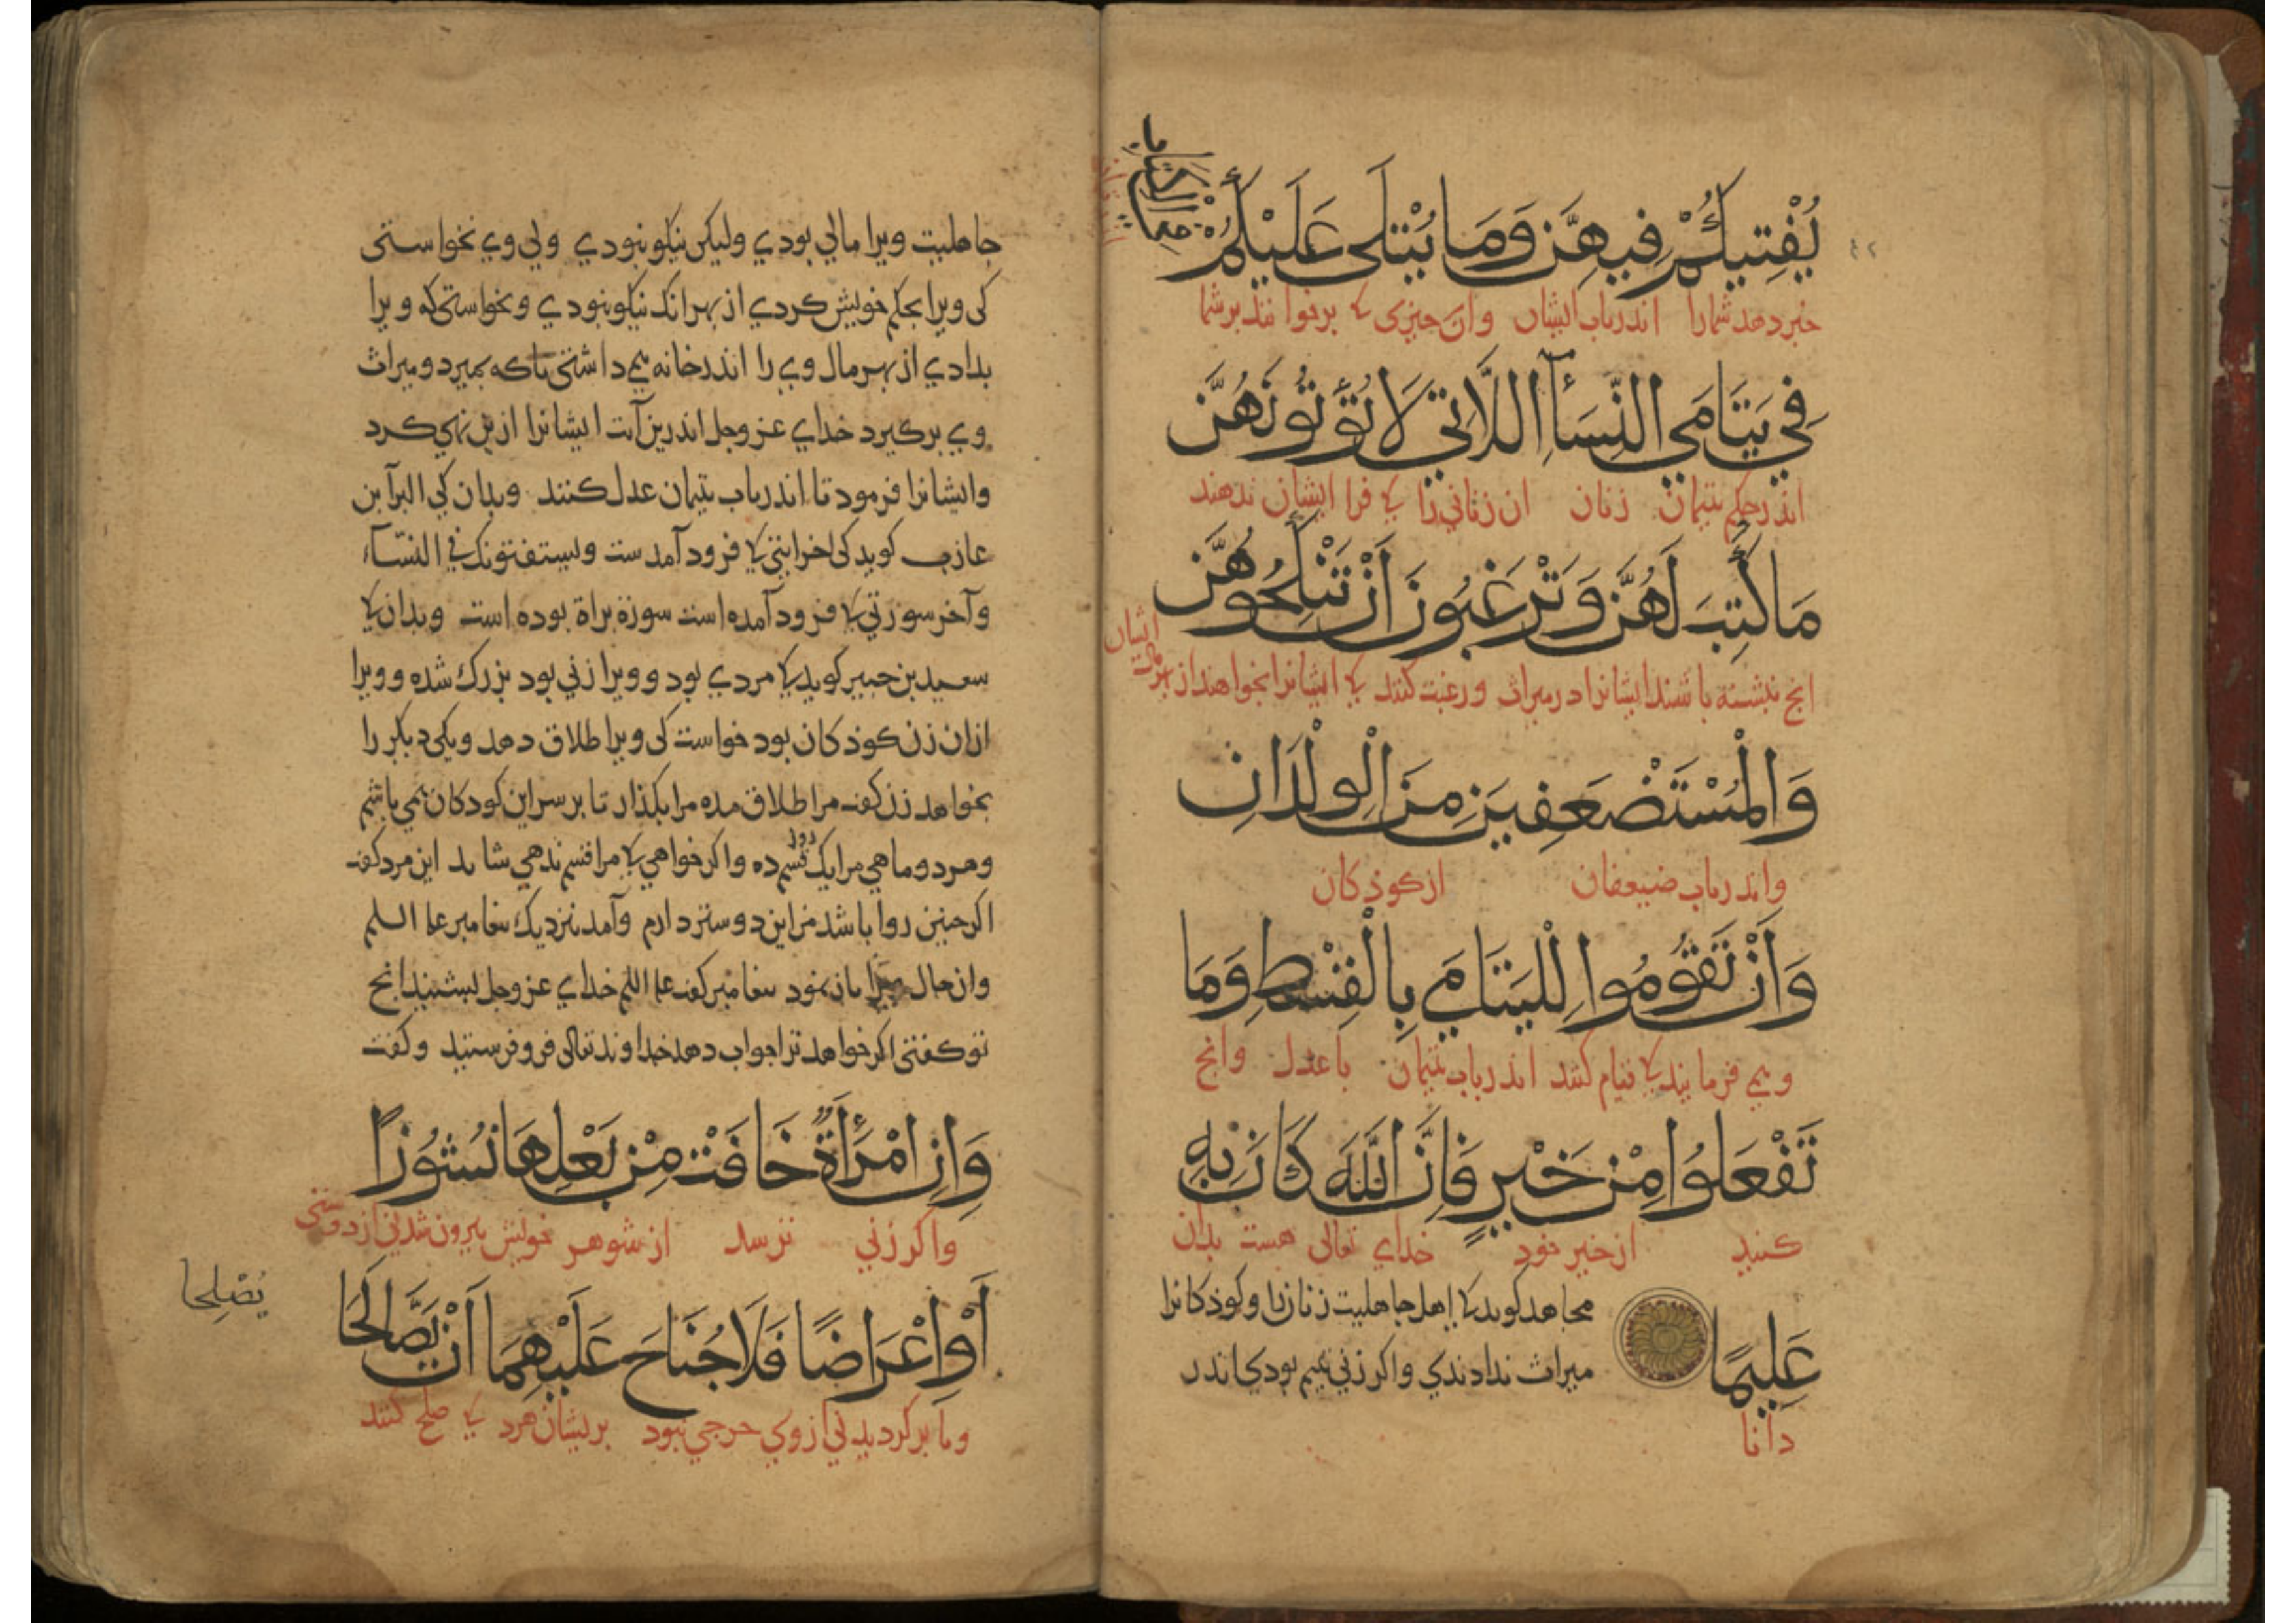 يُفْتِيكُمْ فِيهِنَّ وَمَا يُتْلَى عَلَيْكُمْ
خبر دهد شمارا اندر باب ایشان وان چیزی کی برخوانند بر شما
فِي يَتَامَى النِّسَآءِ اللَّاتِي لَا تُؤْتُونَهُنَّ
اندر حکم یتیمان زنان ان زنانی را کی فرا ایشان ندهند
مَا كُتِبَ لَهُنَّ وَتَرْغَبُونَ أَنْ تَنْكِحُوهُنَّ
انج نبشته باشند ایشانرا در میراث و رغبت کنند کی ایشانرا بخواهند از بهر مال ایشان
وَالْمُسْتَضْعَفِينَ مِنَ الْوِلْدَانِ
واندر باب ضیعفان از کوذکان
وَأَنْ تَقُومُوا لِلْيَتَامَى بِالْقِسْطِ وَمَا
و می فرمایند کی قیام کنند اندر باب یتیمان با عدل وانج
تَفْعَلُوا مِنْ خَيْرٍ فَإِنَّ اللَّهَ كَانَ بِهِ
کنید از خیر خود خدای تعالی هست بدان
عَلِيمًا
دانا
مجاهد کوید کی اهل جاهلیت زنانرا وکوذکانرا
میراث ندادندی واکر زنی یتیم بودی اندر
جاهلیت ویرا مالی بودی ولیکن نیکو نبودی ولی وی نخواستی
کی ویرا بحکم خویش کردی از بهر انک نیکو نبودی ونخواستی که ویرا
بدادی از بهر مال وی را اندر خانه می داشتی تا که بمیرد و میراث
وی برکیرد خدای عز وجل اندرین آیت ایشانرا ازین نهی کرد
وایشانرا فرمود تا اندر باب یتیمان عدل کنند وبدان کی البرآ بن
عازب کوید کی اخر ایتی کی فرود آمدست ویستفتونک في النسآء
وآخر سورتی کی فرود آمده است سورة براة بوده است وبدان کی
سعید بن جبیر کوید کی مردی بود وویرا زنی بود بزرک شده وویرا
ازان زن کوذکان بود خواست کی ویرا طلاق دهد ویکی دیکر را
بخواهد زن کفت مرا طلاق مده مرا بکذار تا بر سر این کودکان می باشم
وهر دو ماهی مرا یک قسم ده واکر خواهی کی مرا قسم ندهی شاید این مرد کفت
اکر چنین روا باشد من این دوستر دارم وآمد نزدیک پیغامبر علیه السلم
وان حال بیان نمود پیغامبر کفت علیه السلم خدای عز وجل بشنید انج
تو کفتی اکر خواهد ترا جواب دهد خداوند تعالی فرو فرستید وکفت
وَإِنِ امْرَأَةٌ خَافَتْ مِنْ بَعْلِهَا نُشُوزًا
واکر زنی ترسد از شوهر خویش بیرون شدنی از دوستی
أَوْ إِعْرَاضًا فَلَا جُنَاحَ عَلَيْهِمَا أَنْ يَصَّالَحَا
ویا برکردیدنی ازوی حرجی نبود بریشان هر دو کی صلح کنند
يُصْلِحَا